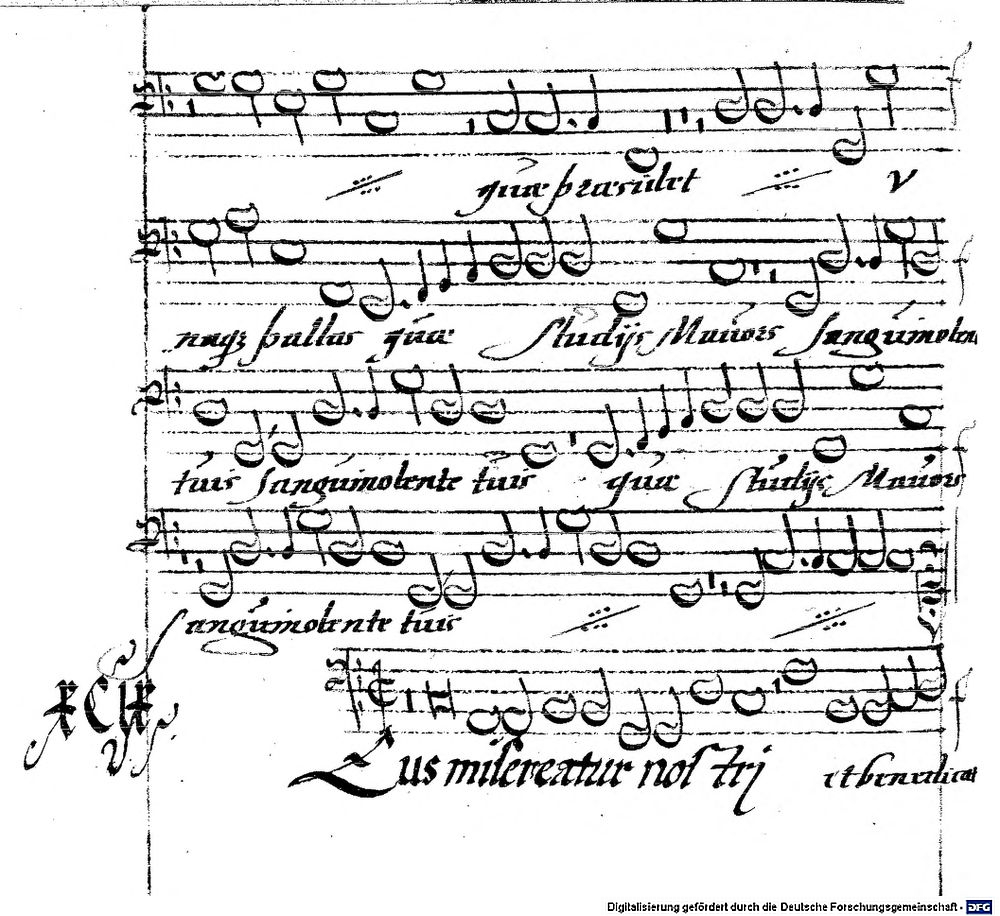 quæ præsidet V
naqz pallas quæ Studijs Mauors sanguinolen
tuis sanguinolente tuis quæ Studijs Mauors
sanguinolente tuis
Eus misereatur nostri et benedicat
Digitalisierung gefördert durch die Deutsche Forschungsgemeinschaft - DFG